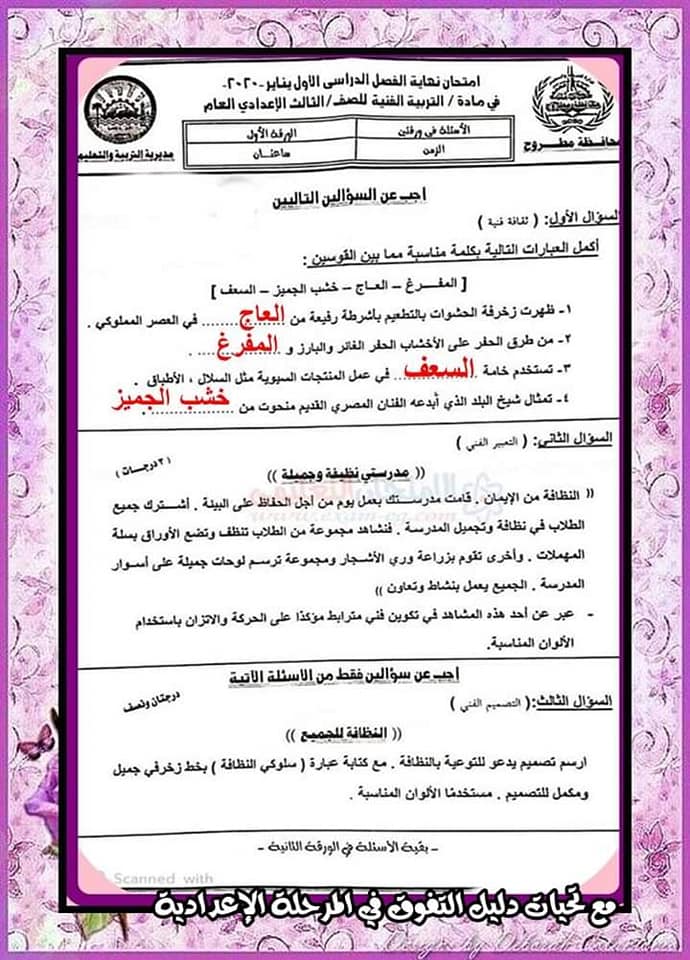 امتحان نهاية الفصل الدراسى الاول يناير -٢٠٢٠-
في مادة / التربية الفنية للصف/ الثالث الإعدادي العام
محافظة مطروح
مديرية التربية والتعليم
الأسئلة في ورقتين
الورقة الأولى
الزمن
ساعتان
اجب عن السؤالين التاليين
السؤال الأول: ( ثقافة فنية )
أكمل العبارات التالية بكلمة مناسبة مما بين القوسين :
[ المفـرغ – العاج – خشب الجميز – السعف ]
١- ظهرت زخرفة الحشوات بالتطعيم بأشرطة رفيعة من العاج في العصر المملوكي .
٢- من طرق الحفر على الأخشاب الحفر الغائر والبارز و المفرغ .
٣- تستخدم خامة السعف في عمل المنتجات اليدوية مثل السلال ، الأطباق .
٤- تمثال شيخ البلد الذي أبدعه الفنان المصري القديم منحوت من خشب الجميز
السؤال الثانى: ( التعبير الفني )
(٣ درجات )
(( مدرستي نظيفة وجميلة ))
الامتحان التعليمى
www.exam-eg.com
(( النظافة من الإيمان . قامت مدرستك بعمل يوم من أجل الحفاظ على البيئة . أشترك جميع
الطلاب في نظافة وتجميل المدرسة . فنشاهد مجموعة من الطلاب تنظف وتضع الأوراق بسلة
المهملات . وأخرى تقوم بزراعة وري الأشجار ومجموعة ترسم لوحات جميلة على أسوار
المدرسة . الجميع يعمل بنشاط وتعاون ))
- عبر عن أحد هذه المشاهد في تكوين فني مترابط مؤكدًا على الحركة والاتزان باستخدام
الألوان المناسبة.
اجب عن سؤالين فقط من الأسئلة الآتية
السؤال الثالث: ( التصميم الفني )
درجتان ونصف
(( النظافة للجميع ))
ارسم تصميم يدعو للتوعية بالنظافة . مع كتابة عبارة ( سلوكي النظافة ) بخط زخرفي جميل
ومكمل للتصميم . مستخدمًا الألوان المناسبة .
- بقية الأسئلة في الورقة الثانية -
Scanned with
مع تحيات دليل التفوق في المرحلة الإعدادية